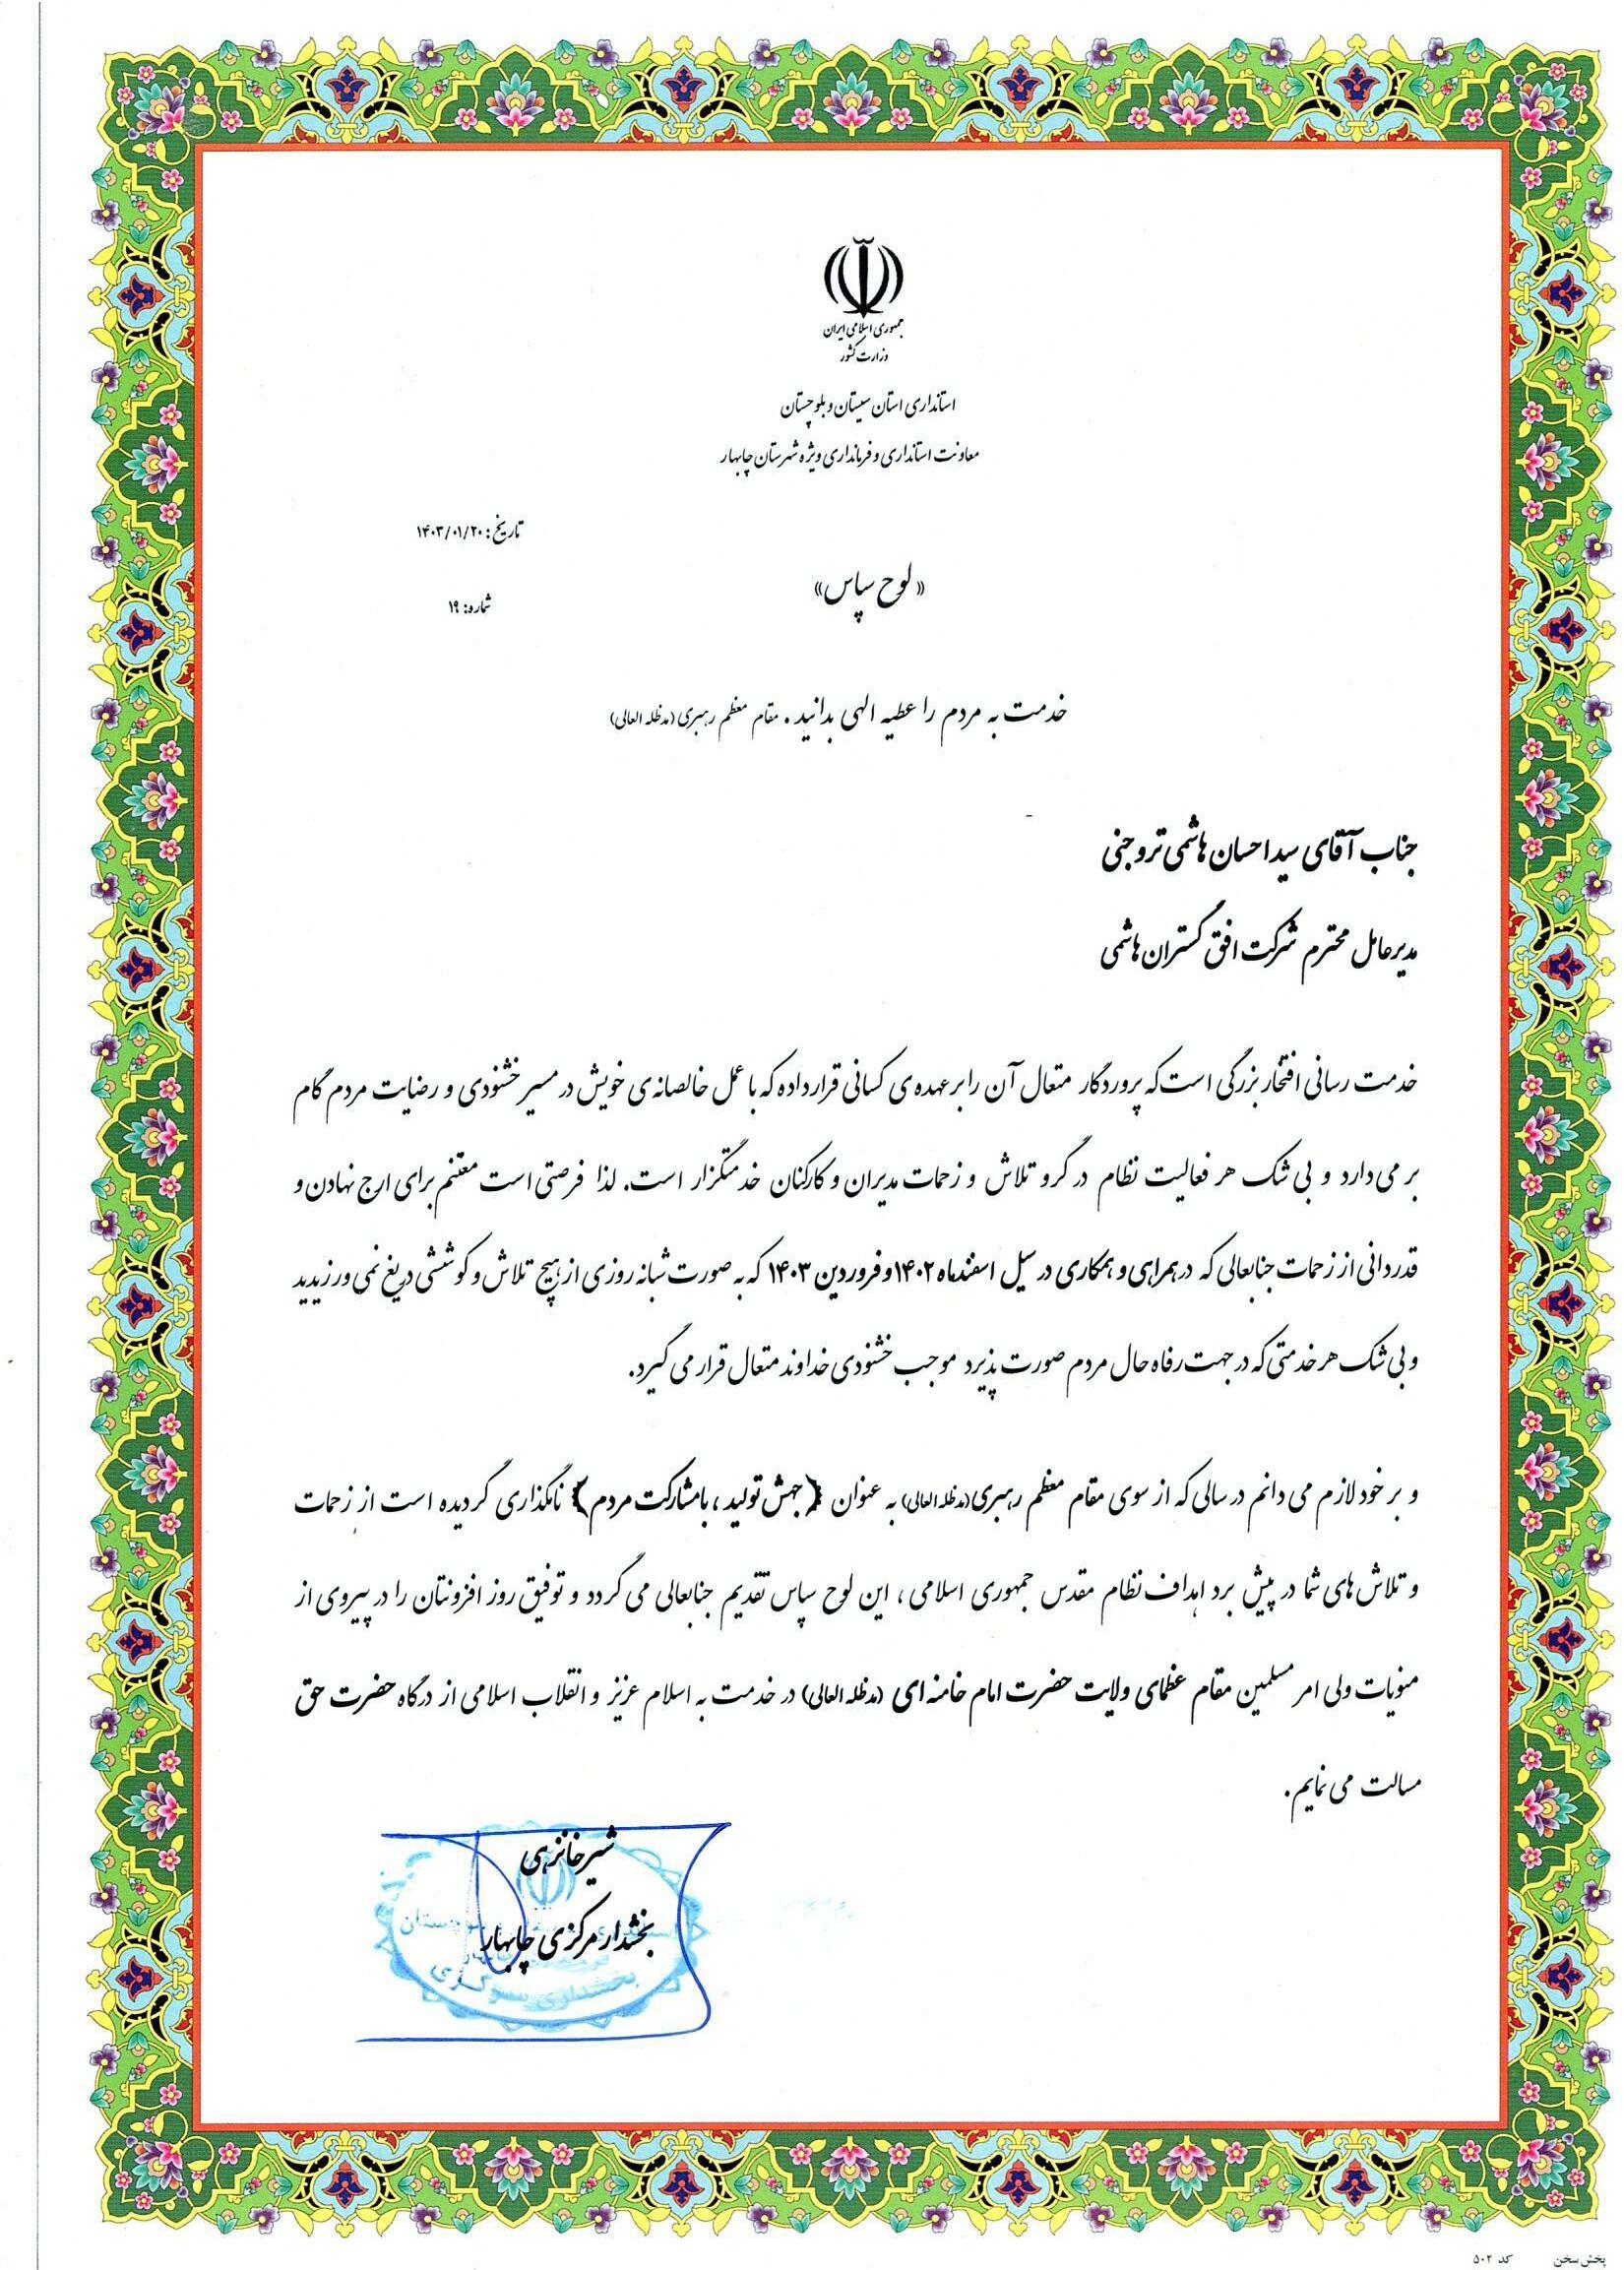 جمهوری اسلامی ایران
وزارت کشور
استانداری استان سیستان و بلوچستان
معاونت استانداری و فرمانداری ویژه شهرستان چابهار
تاریخ: ۱۴۰۳/۰۱/۲۰
«لوح سپاس»
شماره: ۱۹
خدمت به مردم را عطیه الهی بدانید. مقام معظم رهبری (مدظله العالی)
جناب آقای سید احسان هاشمی تروجنی
مدیرعامل محترم شرکت افق گستران هاشمی
خدمت رسانی افتخار بزرگی است که پروردگار متعال آن را بر عهده ی کسانی قرار داده که با عمل خالصانه ی خویش در مسیر خشنودی و رضایت مردم گام
بر می دارد و بی شک هر فعالیت نظام در گرو تلاش و زحمات مدیران و کارکنان خدمتگزار است. لذا فرصتی است مغتنم برای ارج نهادن و
قدردانی از زحمات جنابعالی که در همراهی و همکاری در سیل اسفندماه ۱۴۰۲ و فروردین ۱۴۰۳ که به صورت شبانه روزی از هیچ تلاش و کوششی دریغ نمی ورزیدید
و بی شک هر خدمتی که در جهت رفاه حال مردم صورت پذیرد موجب خشنودی خداوند متعال قرار می گیرد.
و بر خود لازم می دانم در سالی که از سوی مقام معظم رهبری (مدظله العالی) به عنوان (جهش تولید، با مشارکت مردم) نامگذاری گردیده است از زحمات
و تلاش های شما در پیش برد اهداف نظام مقدس جمهوری اسلامی، این لوح سپاس تقدیم جنابعالی می گردد و توفیق روز افزونتان را در پیروی از
منویات ولی امر مسلمین مقام عظمای ولایت حضرت امام خامنه ای (مدظله العالی) در خدمت به اسلام عزیز و انقلاب اسلامی از درگاه حضرت حق
مسالت می نمایم.
شیرخانزهی
بخشدار مرکزی چابهار
بخشداری مرکزی
پخش سخن کد ۵۰۲